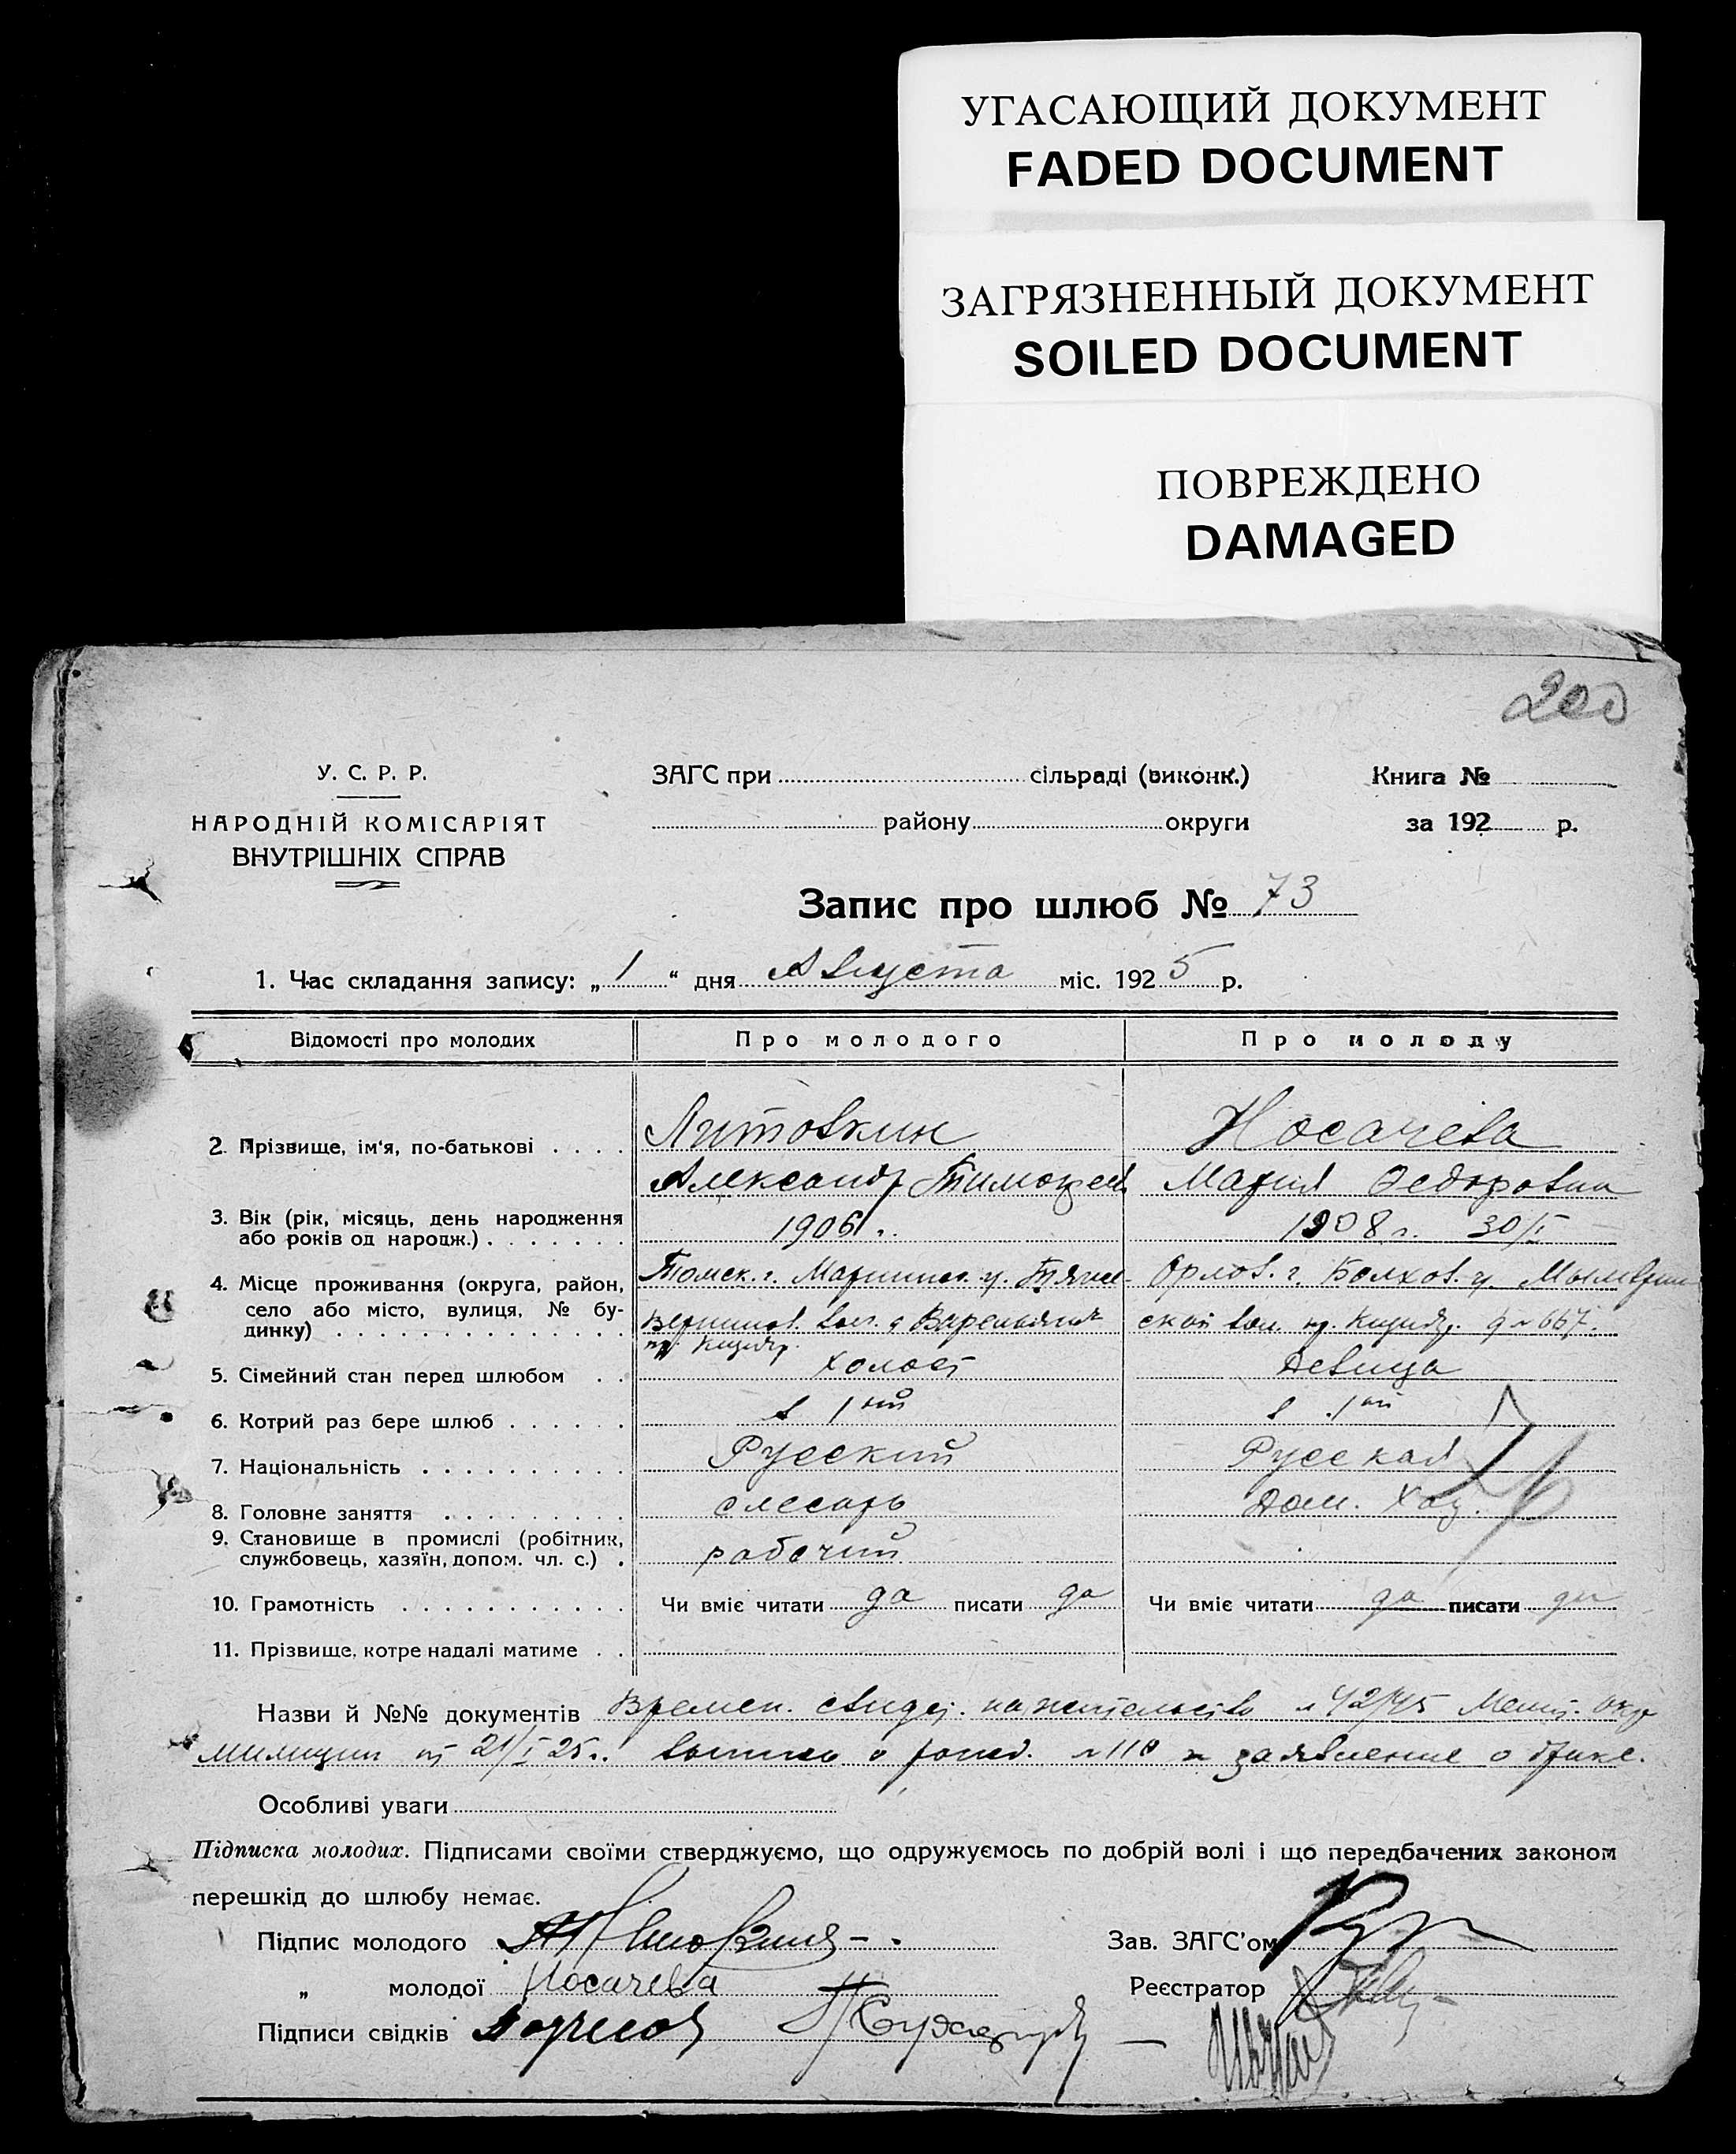 УГАСАЮЩИЙ ДОКУМЕНТ
FADED DOCUMENT
ЗАГРЯЗНЕННЫЙ ДОКУМЕНТ
SOILED DOCUMENT
ПОВРЕЖДЕНО
DAMAGED
200
У. С. Р. Р.
НАРОДНІЙ КОМІСАРІЯТ
ВНУТРІШНІХ СПРАВ
ЗАГС при сільраді (виконк.)
району округи
Книга №
за 192 р.
Запис про шлюб № 73
1. Час складання запису: „ 1 “ дня Августа міс. 1925 р.
Відомості про молодих Про молодого Про молоду
2. Прізвище, ім'я, по-батькові Литовкин Носачева
Александр Тимофеев Мария Федоровна
3. Вік (рік, місяць, день народження або років од народж.) 1906 г. 1908 г. 30/I
4. Місце проживання (округа, район, село або місто, вулиця, № будинку)
Томск. г. Мариинск. у. Орлов. г. Болхов. у.
вол. ской вол. д № 667.
5. Сімейний стан перед шлюбом холост Девица
6. Котрий раз бере шлюб в 1ый в 1ый
7. Національність Русский Русская
8. Головне заняття слесарь Дом. Хоз.
9. Становище в промислі (робітник, службовець, хазяїн, допом. чл. с.) рабочий
10. Грамотність Чи вміє читати да писати да Чи вміє читати да писати да
11. Прізвище, котре надалі матиме
Назви й №№ документів Времен. свидет. на жительство
милиции от 21/I 25 г. о рожд. № 118 и заявление о браке.
Особливі уваги
Підписка молодих. Підписами своїми стверджуємо, що одружуємось по добрій волі і що передбачених законом
перешкід до шлюбу немає.
Підпис молодого Зав. ЗАГС'ом
„ молодої Носачева Реєстратор
Підписи свідків